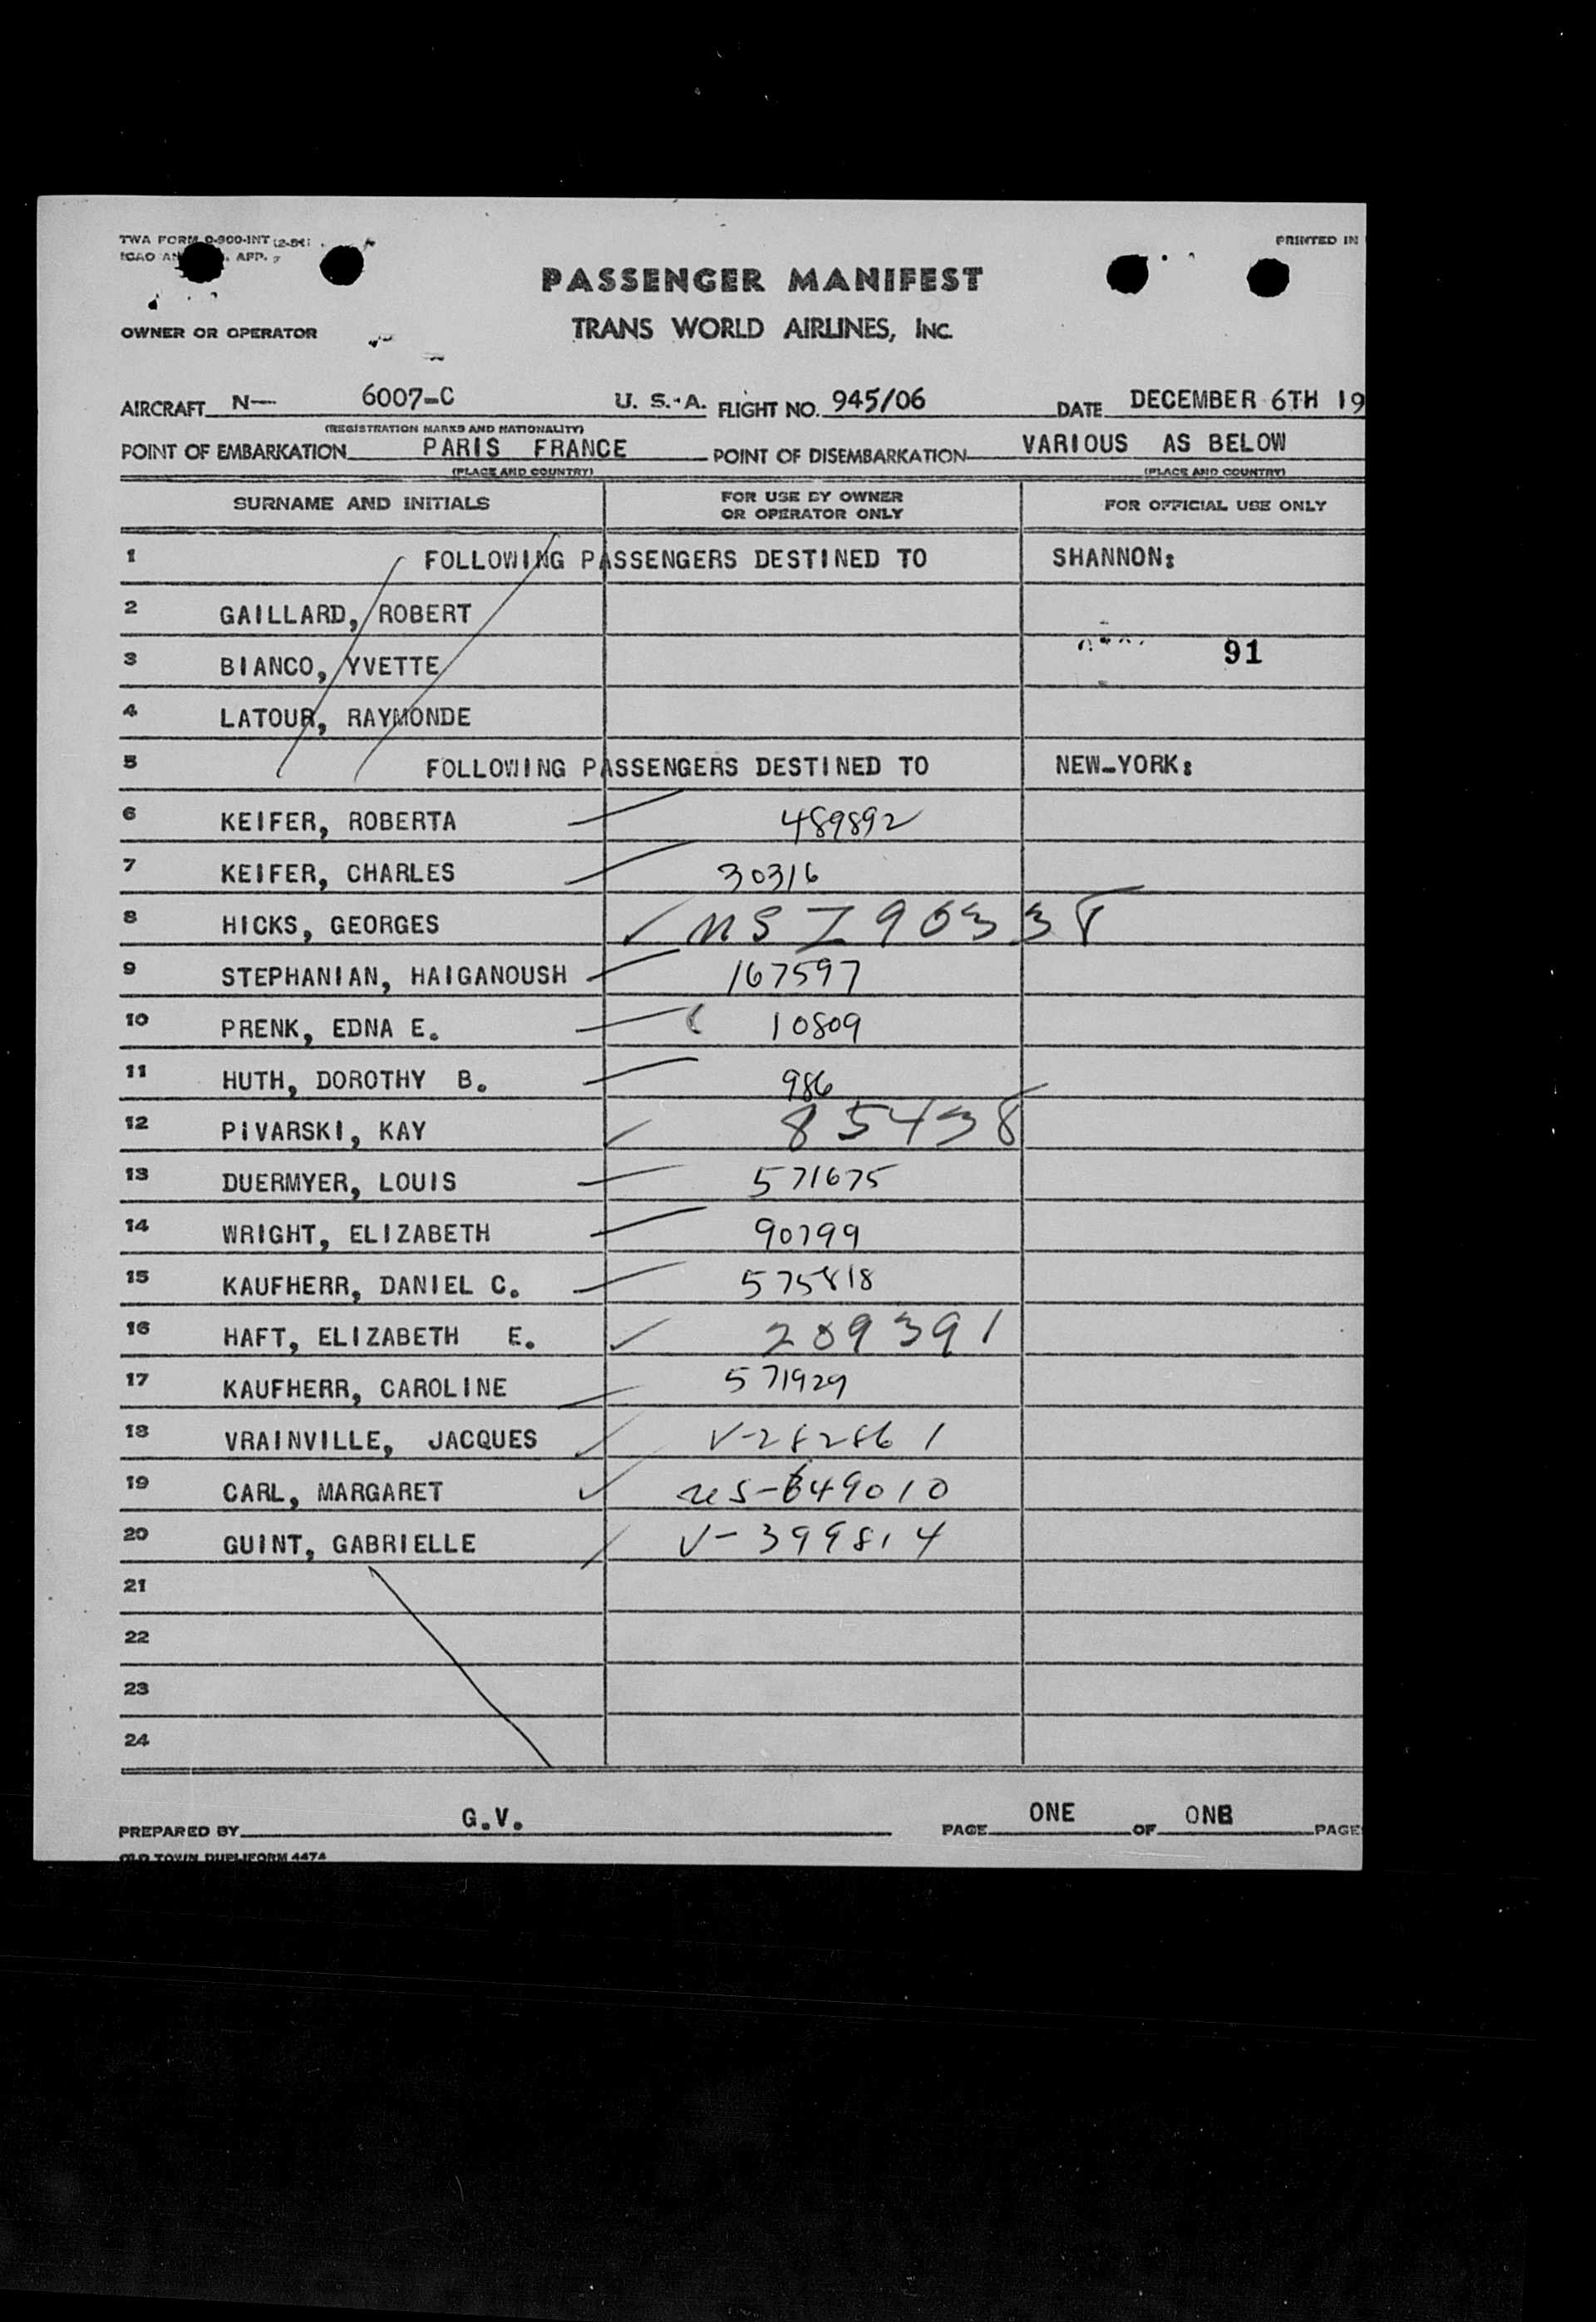 TWA FORM O-900-INT (2-51)
ICAO AN . APP. 7
PRINTED IN
PASSENGER MANIFEST
OWNER OR OPERATOR
TRANS WORLD AIRLINES, INC.
AIRCRAFT N— 6007-C U. S. A. FLIGHT NO. 945/06 DATE DECEMBER 6TH 19
(REGISTRATION MARKS AND NATIONALITY)
POINT OF EMBARKATION PARIS FRANCE POINT OF DISEMBARKATION VARIOUS AS BELOW
(PLACE AND COUNTRY) (PLACE AND COUNTRY)
SURNAME AND INITIALS FOR USE BY OWNER OR OPERATOR ONLY FOR OFFICIAL USE ONLY
1 FOLLOWING PASSENGERS DESTINED TO SHANNON:
2 GAILLARD, ROBERT
3 BIANCO, YVETTE 91
4 LATOUR, RAYMONDE
5 FOLLOWING PASSENGERS DESTINED TO NEW-YORK:
6 KEIFER, ROBERTA 489892
7 KEIFER, CHARLES 30316
8 HICKS, GEORGES
9 STEPHANIAN, HAIGANOUSH 167597
10 PRENK, EDNA E. 10809
11 HUTH, DOROTHY B. 986
12 PIVARSKI, KAY 85438
13 DUERMYER, LOUIS 571675
14 WRIGHT, ELIZABETH 90799
15 KAUFHERR, DANIEL C. 575818
16 HAFT, ELIZABETH E. 209391
17 KAUFHERR, CAROLINE 571929
18 VRAINVILLE, JACQUES V-282861
19 CARL, MARGARET US-649010
20 GUINT, GABRIELLE V-399814
21
22
23
24
PREPARED BY G.V. PAGE ONE OF ONE PAGE
OLD TOWN DUPLIFORM 4474